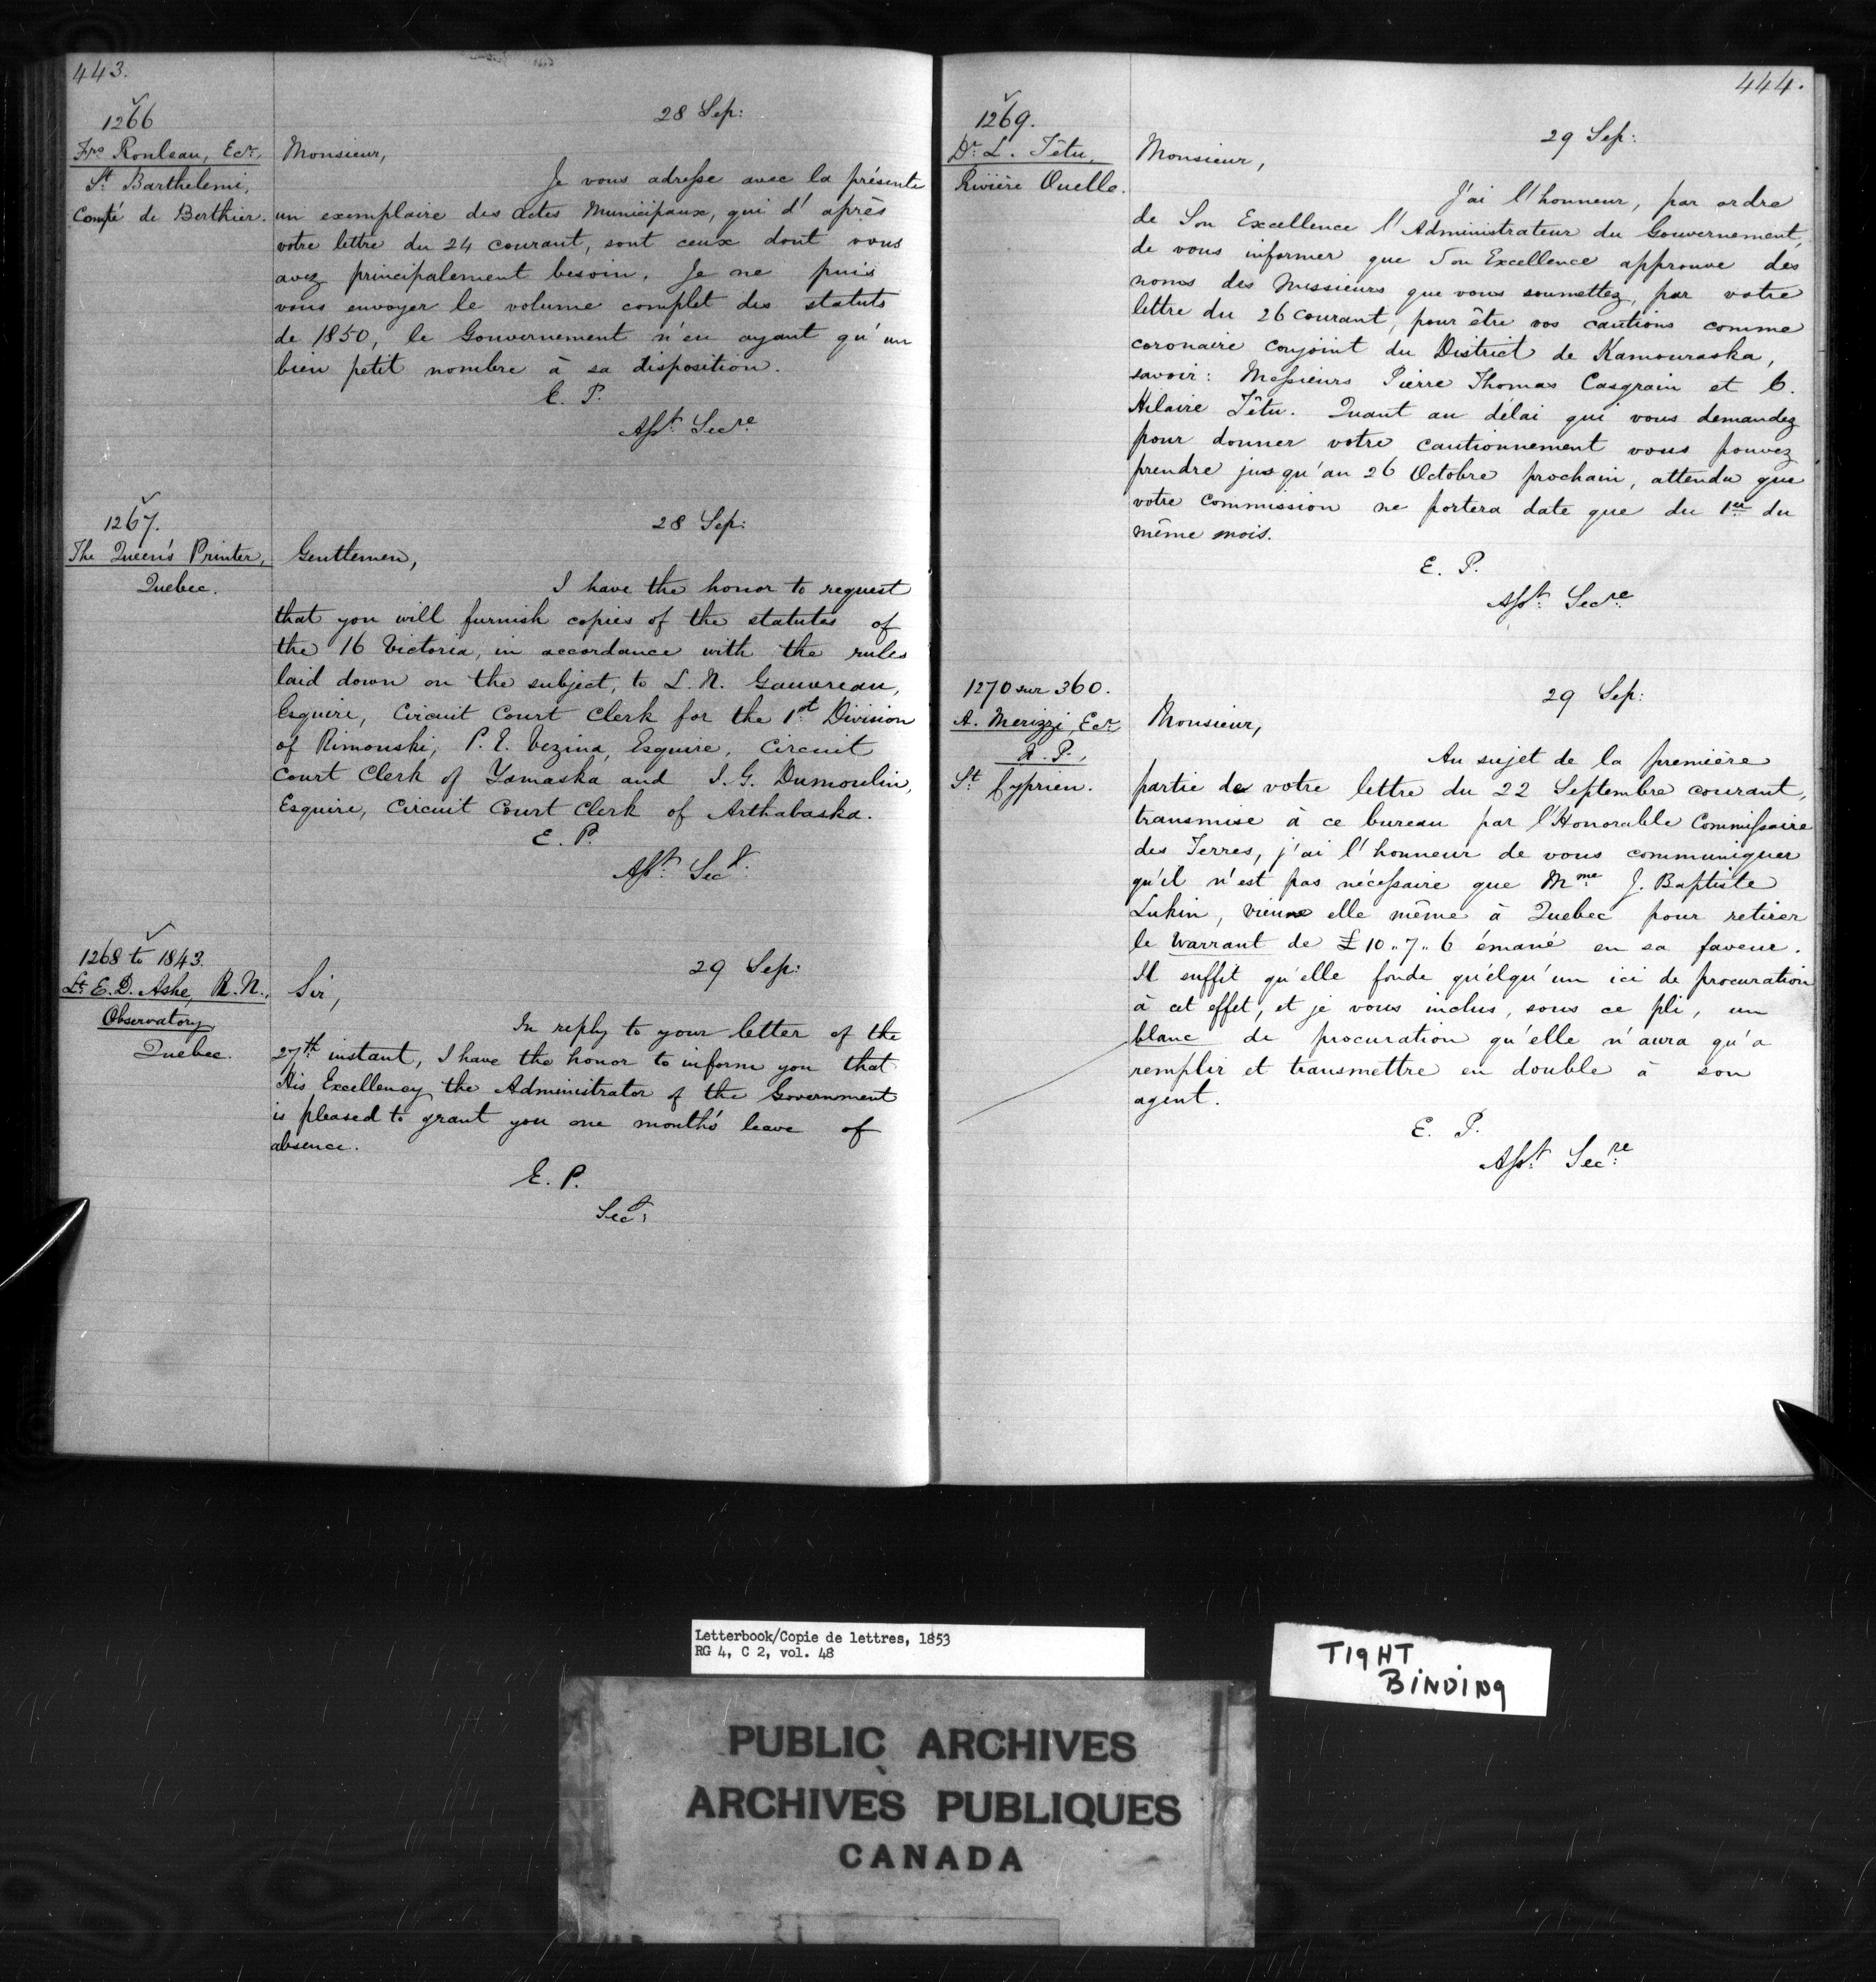 443.
1266
Fro Rouleau, Ecr.
St Barthelemi,
Comté de Berthier.
28 Sep:
Monsieur,
Je vous adresse avec la présente
un exemplaire des Actes Municipaux, qui d'après
votre lettre du 24 courant, sont ceux dont vous
avez principalement besoin. Je ne puis
vous envoyer le volume complet des statuts
de 1850, le Gouvernement n'en ayant qu'un
bien petit nombre à sa disposition.
E. P.
Asst. Secre
1267.
The Queen's Printer,
Quebec.
28 Sep:
Gentlemen,
I have the honor to request
that you will furnish copies of the statutes of
the 16 Victoria, in accordance with the rules
laid down on the subject, to L. N. Gauvreau,
Esquire, Circuit Court Clerk for the 1st Division
of Rimouski, P. E. Vezina, Esquire, Circuit
Court Clerk of Yamaska and S. G. Dumoulin,
Esquire, Circuit Court Clerk of Arthabaska.
E. P.
Asst. Secy.
1268 to 1843.
Lt. E. D. Ashe, R. N.,
Observatory,
Quebec.
29 Sep:
Sir,
In reply to your letter of the
27th instant, I have the honor to inform you that
His Excellency the Administrator of the Government
is pleased to grant you one month's leave of
absence.
E. P.
Secy:
444.
1269.
Dr. L. Têtu,
Rivière Ouelle.
29 Sep:
Monsieur,
J'ai l'honneur, par ordre
de Son Excellence l'Administrateur du Gouvernement,
de vous informer que Son Excellence approuve des
noms des Messieurs que vous soumettez, par votre
lettre du 26 courant, pour être vos cautions comme
coronaire conjoint du District de Kamouraska,
savoir: Messieurs Pierre Thomas Casgrain et C.
Hilaire Têtu. Quant au délai qui vous demandez
pour donner votre cautionnement vous pouvez
prendre jusqu'au 26 Octobre prochain, attendu que
votre commission ne portera date que du 1er du
même mois.
E. P.
Asst. Secre
1270 sur 360.
A. Merizzi, Ecr
N. P.,
St Cyprien.
29 Sep:
Monsieur,
Au sujet de la première
partie de votre lettre du 22 Septembre courant,
transmise à ce bureau par l'Honorable Commissaire
des Terres, j'ai l'honneur de vous communiquer
qu'il n'est pas nécessaire que Mme J. Baptiste
Lukin, vienne elle même à Quebec pour retirer
le Warrant de £10..7..6 émané en sa faveur.
Il suffit qu'elle fonde quelqu'un ici de procuration
à cet effet, et je vous inclus, sous ce pli, un
blanc de procuration qu'elle n'aura qu'a
remplir et transmettre en double à son
agent.
E. P.
Asst. Secre
Letterbook/Copie de lettres, 1853
RG 4, C 2, vol. 48
TIGHT
BINDING
PUBLIC ARCHIVES
ARCHIVES PUBLIQUES
CANADA